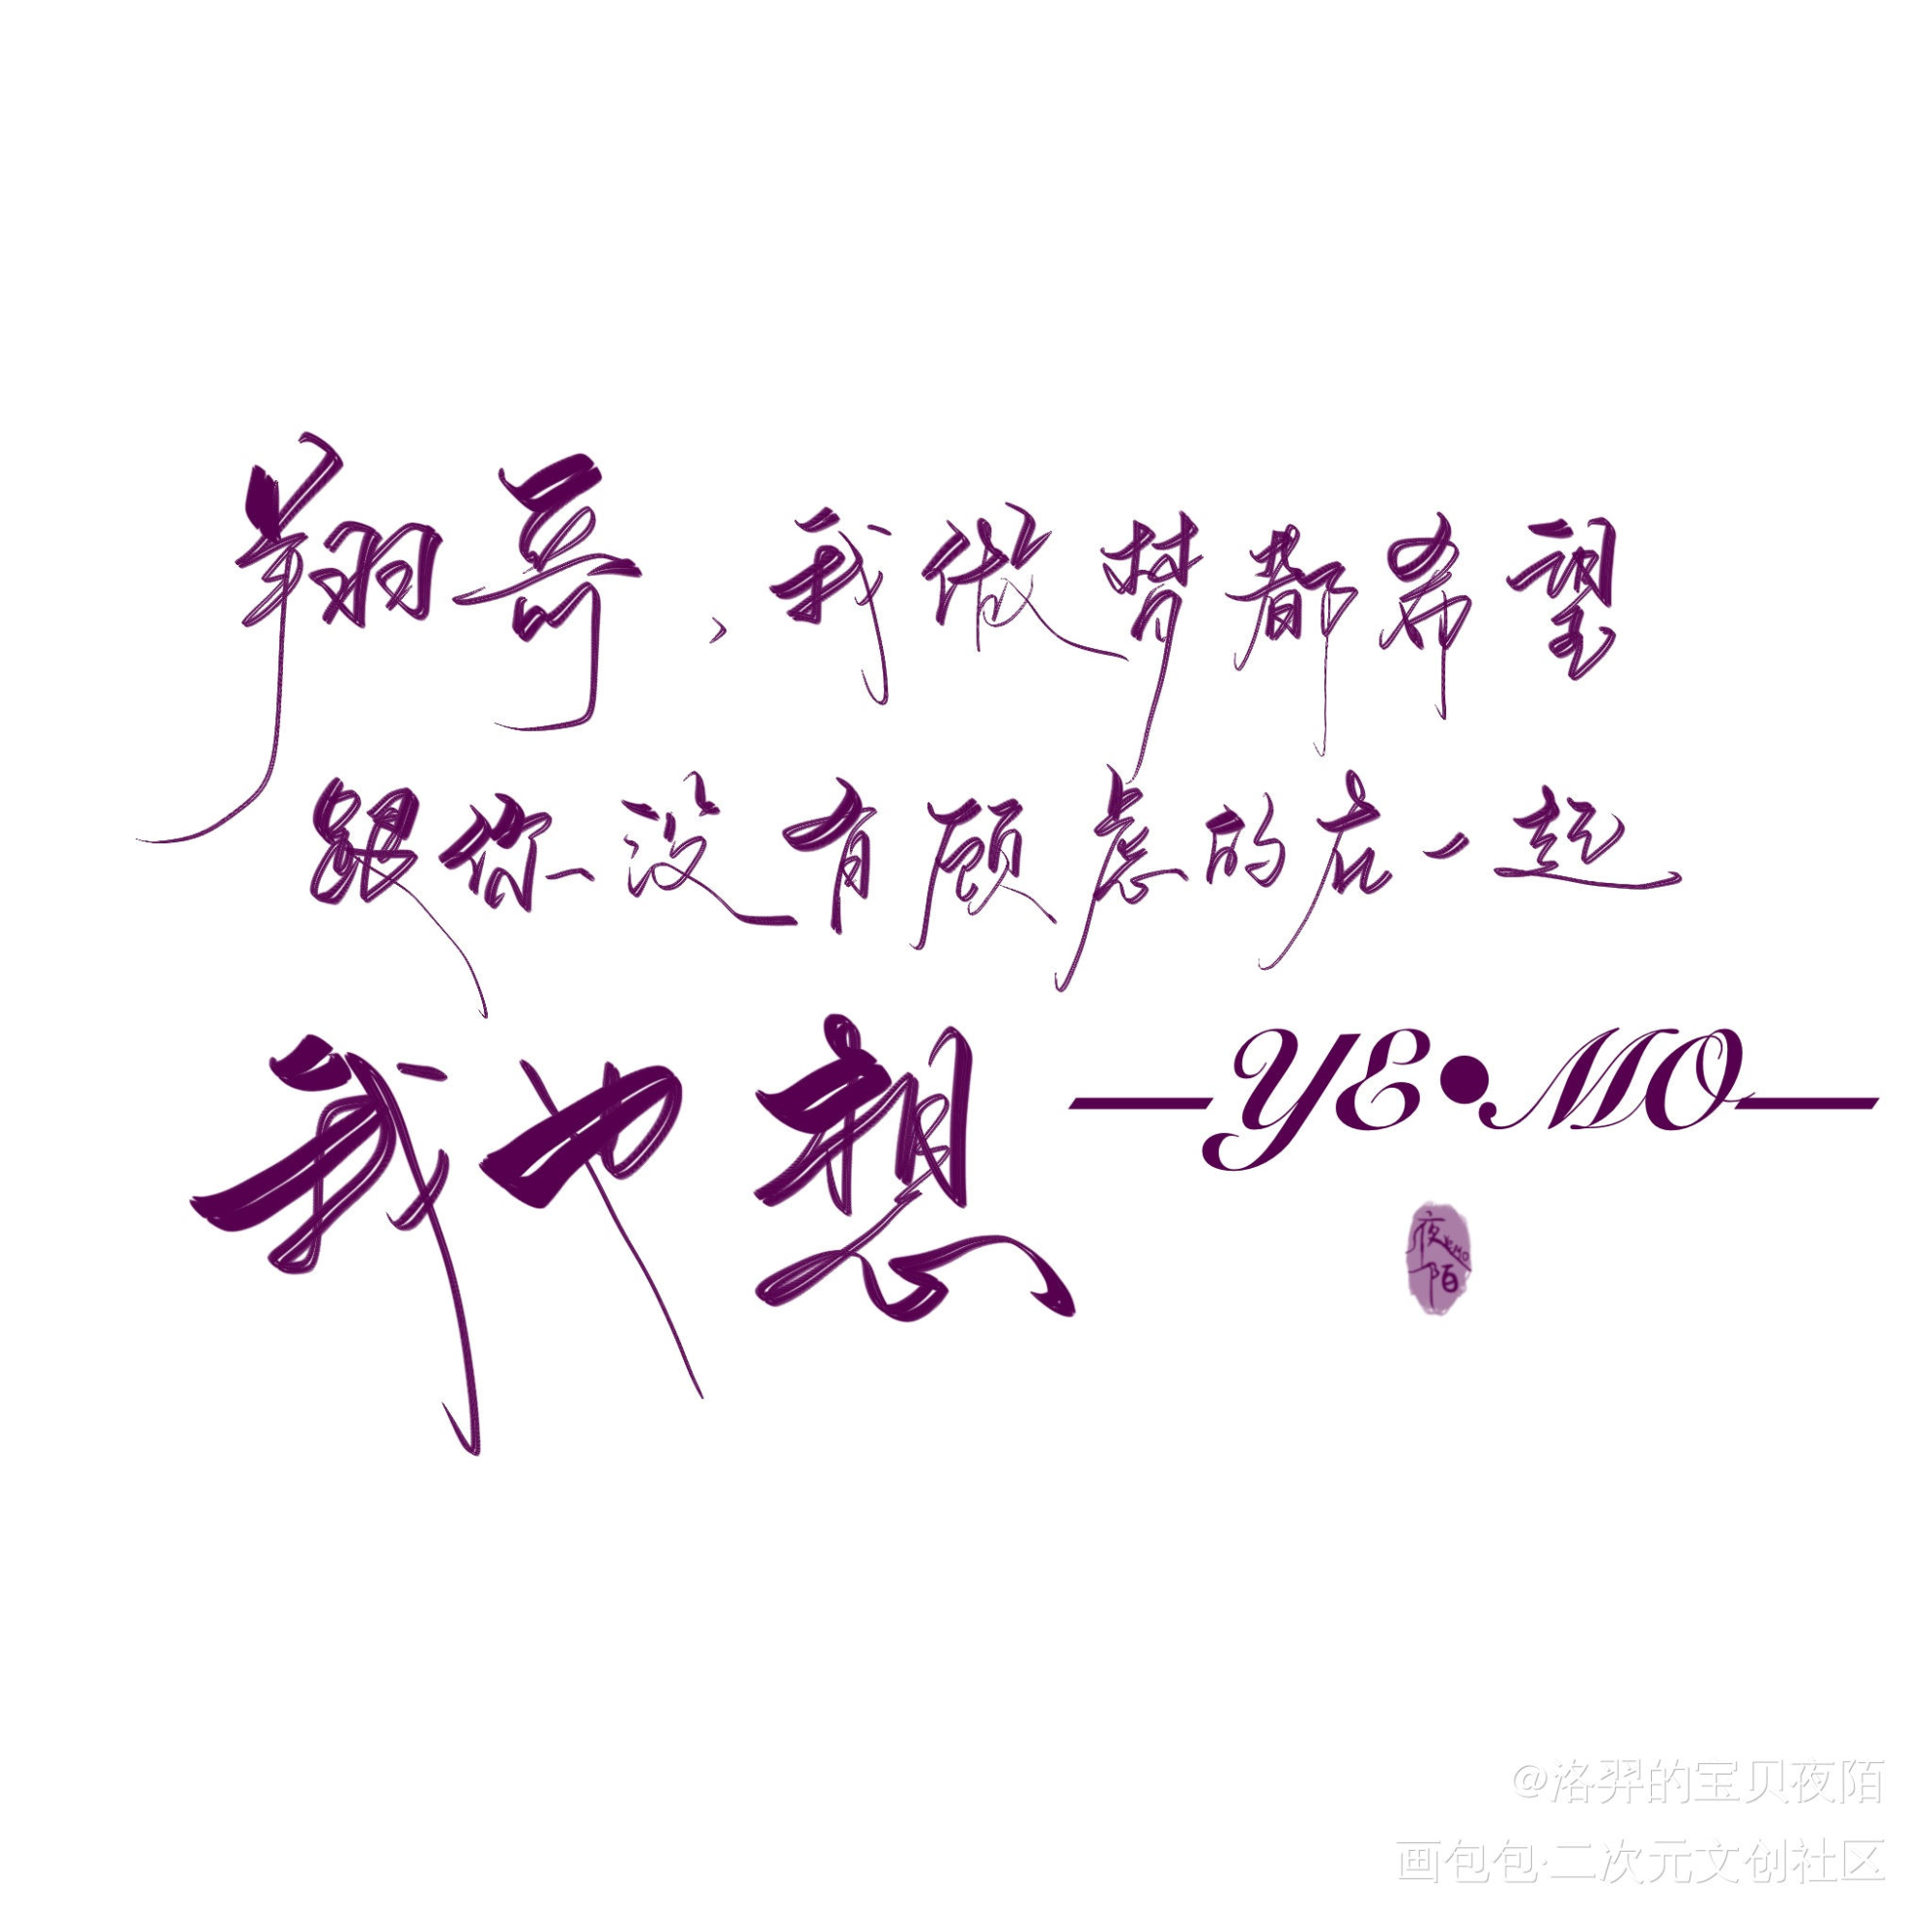 翔哥，我做梦都希望
跟你没有顾虑的在一起
我也想
—YE•MO—
夜陌
YEMO
@洛羿的宝贝夜陌
画包包·二次元文创社区